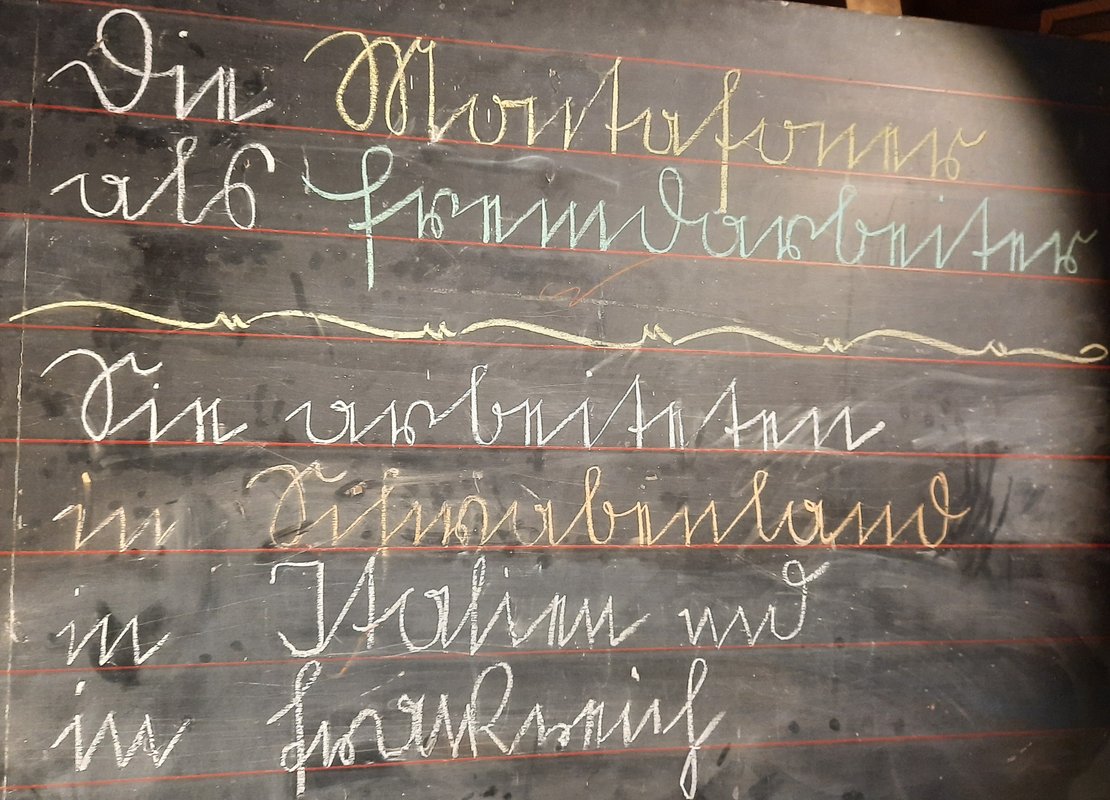 Die Montafoner
als Fremdarbeiter
Sie arbeiteten
in Schwabenland
in Italien und
in Frankreich